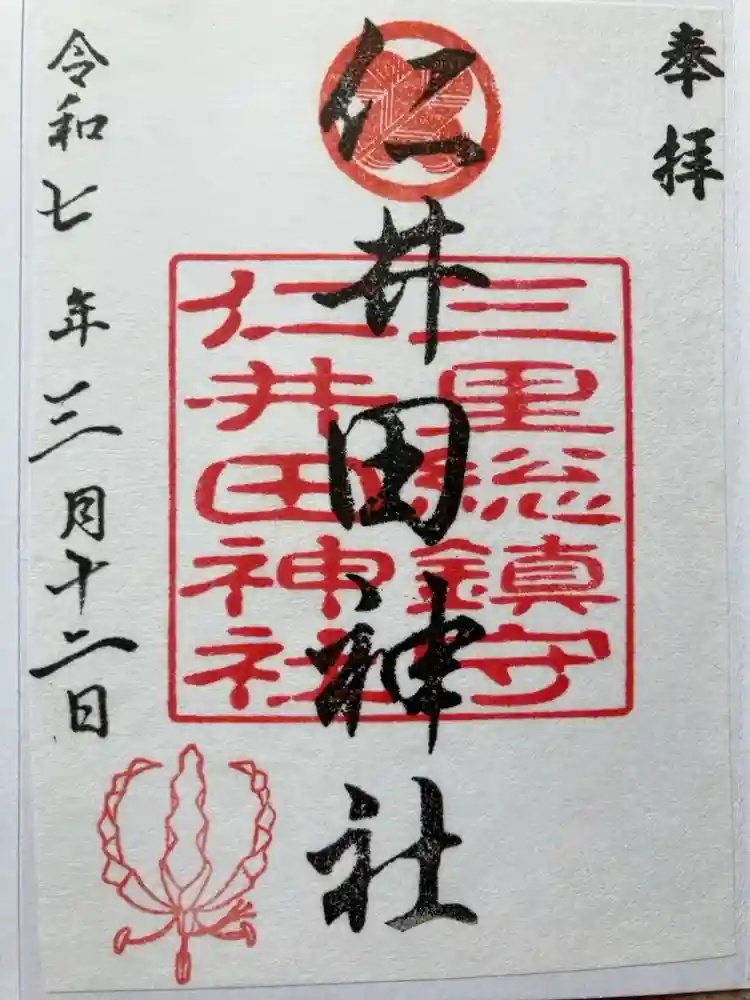 奉拝
仁井田神社
三里総鎮守
仁井田神社
令和七年三月十二日